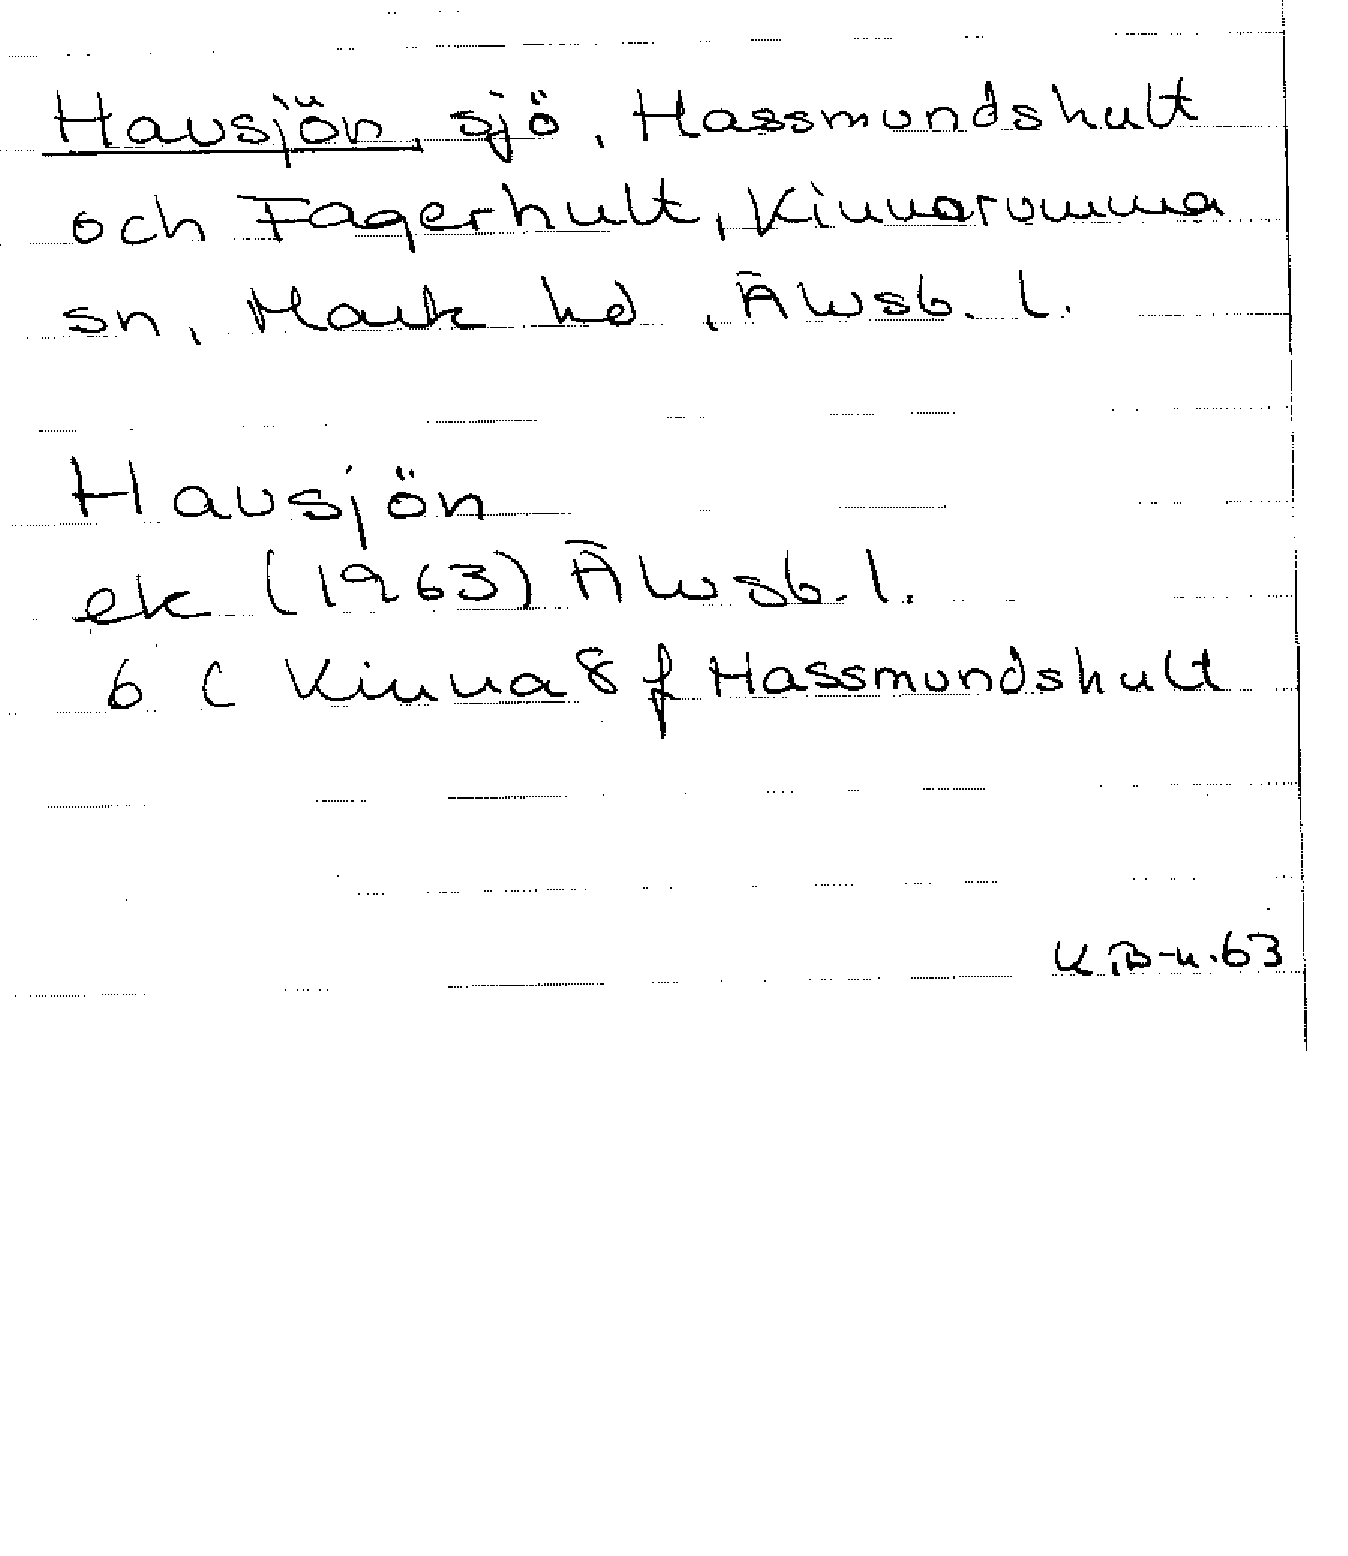 Havsjön, sjö, Hassmundshult
och Fagerhult, Kinnarumma
sn, Mark hd, Älvsb. l.
Havsjön
ek (1963) Älvsb. l.
6 C Kinna 8 f Hassmundshult
63